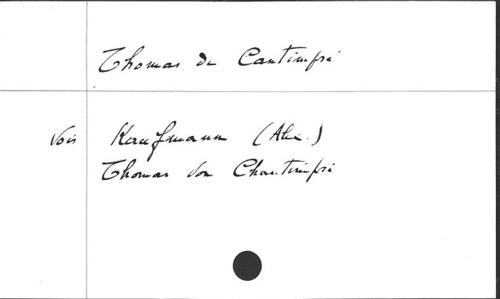 Thomas de Cantimpré
Voir Kaufmann (Alex.)
Thomas von Chantimpré